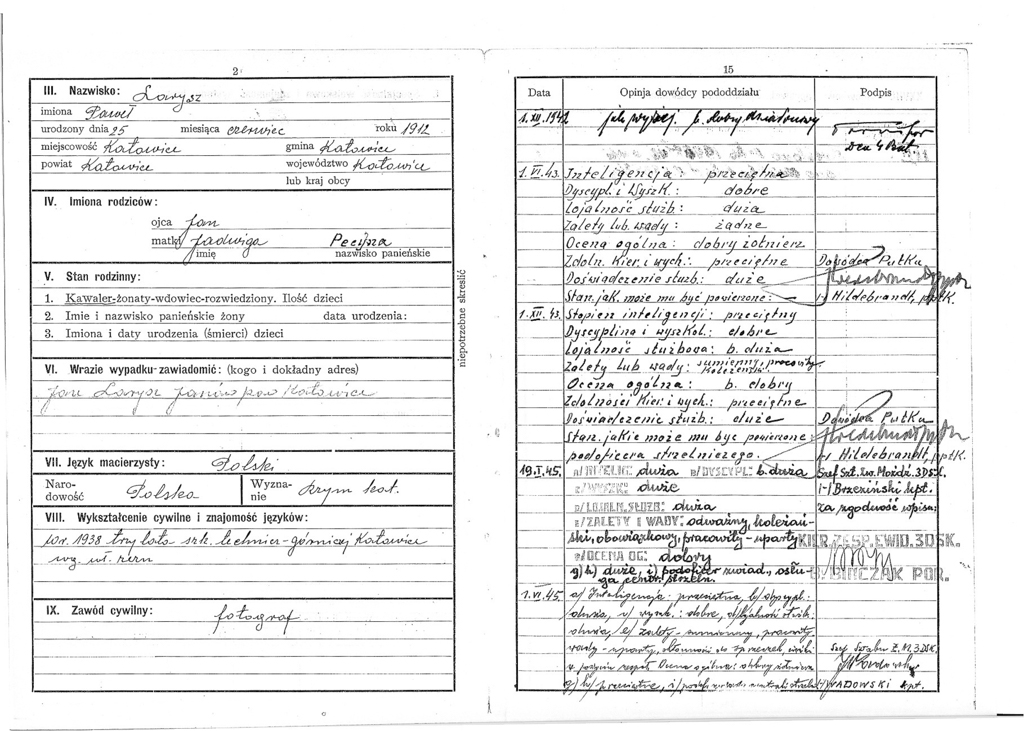 2
III. Nazwisko: Larysz
imiona Paweł
urodzony dnia 25 miesiąca czerwiec roku 1912
miejscowość Katowice gmina Katowice
powiat Katowice województwo Katowice
lub kraj obcy
IV. Imiona rodziców:
ojca Jan
matki Jadwiga
imię nazwisko panieńskie
V. Stan rodzinny:
1. Kawaler-żonaty-wdowiec-rozwiedziony. Ilość dzieci
2. Imie i nazwisko panieńskie żony data urodzenia:
3. Imiona i daty urodzenia (śmierci) dzieci
niepotrzebne skreślić
VI. Wrazie wypadku-zawiadomić: (kogo i dokładny adres)
Jan Larysz Janów pow Katowice
VII. Język macierzysty: Polski
Narodowość Polska Wyznanie Rzym kat.
VIII. Wykształcenie cywilne i znajomość języków:
1938 trzy lata szk. techniczn-górniczej Katowice
IX. Zawód cywilny: fotograf
15
Data Opinja dowódcy pododdziału Podpis
1. XII. 1942 jak wyżej. b. dobry działonowy
Dca 4 Bat.
1. VI. 43. Inteligencja: przeciętna
Dyscypl. i Wyszk.: dobre
Lojalność służb.: duża
Zalety lub wady: żadne
Ocena ogólna: dobry żołnierz
Zdoln. Kier. i wych.: przeciętne Dowódca Pułku
Doświadczenie służb.: duże
Stan. jak. może mu być powierzone: — /-/ Hildebrandt, ppłk.
1. XII. 43. Stopień inteligencji: przeciętny
Dyscyplina i wyszkol.: dobre
Lojalność służbowa: b. duża
Zalety lub wady: sumienny, pracowity, koleżeński
Ocena ogólna: b. dobry
Zdolności Kier. i wych.: przeciętne
Doświadczenie służb.: duże Dowódca Pułku
Stan. jakie może mu być powierzone:
podoficera strzelniczego. /-/ Hildebrandt, ppłk.
19.I.45. a/INTELIG: duża b/DYSCYPL: b. duża Szef Szt. Zw. Moźdź. 3DSK.
c/WYSZK: duże /-/ Brzeziński kpt.
d/LOJALN. SŁUŻB: duża Za zgodność wpisu:
e/ZALETY I WADY: odważny, koleżański, obowiązkowy, pracowity - uparty KIER. ZESP. EWID. 3DSK.
f/OCENA OG: dobry
g) h) duże, i) podoficer zwiad., osługa centr. strzeln. BINCZAK POR.
1. VI. 45. a/ Inteligencja: przeciętna, b/ dyscypl.:
duża, c/ wyszk.: dobre, d/ lojalność służb.:
duża, e/ zalety - sumienny, pracowity
wady - uparty, skłonność do sprzeczek
Ocena ogólna: dobry żołnierz Szef Sztabu Z.M. 3DSK.
g) h/ przeciętne, i/ /-/ WADOWSKI kpt.